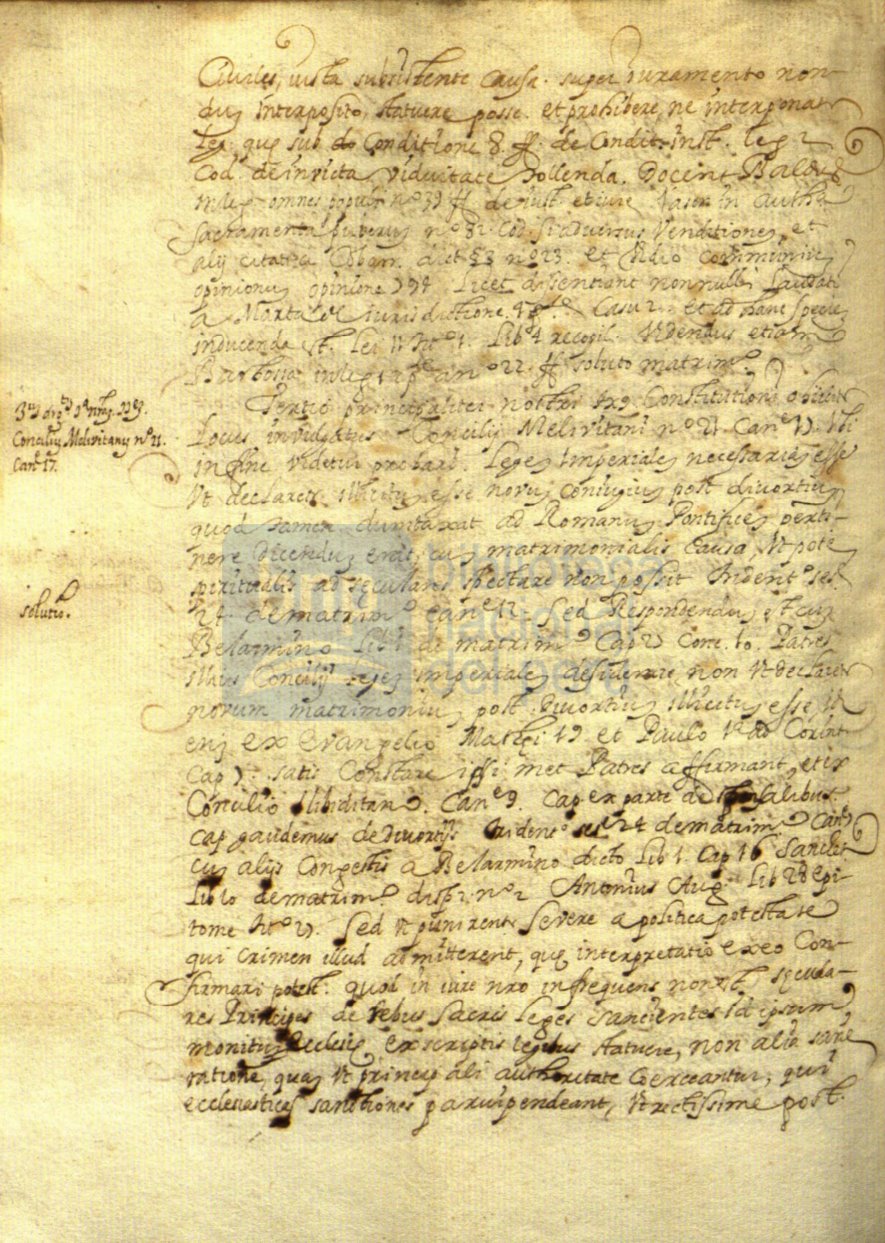 Civiles, iusta subsistente causa super iuramento non
dum interposito, statuere posse et prohibere, ne interponatr
leg. quę sub Conditione 8. ff. de Condit. inst. leg 2
Cod. de invicta viduitate tollenda. Docent Baldus
in leg omnes populi nº 39 ff. de iust. et iure Iason in authe
sacramenta puberum nº 82 Cod. si aduersus Venditionem, et
alij citati a dict §3 nº 23. et Vidio communium
opinionum opinione 394 Licet dissentiant nonnulli laudati
a Marta de iurisdictione 4 pte Casu 2. et ad hanc speciem
inducenda st. Lei titº 1. Lib 4 recopil. Videndus etiam
Barbossa in leg 1 a pte an nº 22. ff soluto matrimº
Tertio principaliter nostrę Constitutioni
Locus invulgatus Concilij Melivitani nº 21 Cane 17. Ubi
in fine videtur probari. Leges Imperiales necessarias esse
Vt declaretr illicitum esse novum coniugium post divortium
quod tamen dumtaxat ad Romanum Pontificem perti-
nere dicendum erit, cum matrimonialis causa Vt pote
spiritualis ad seculares spectare non possit Tridentº ses.
24 de matrimº cane 12. Sed Respondendum est cum
Belarmino Lib 1 de matrimº Cap Patres
illius Concilij leges imperiales desiderare non Vt declaretr
novum matrimonium post Divortium illicitum esse, Vt
enim ex Evangelio Matthęi 19 et Paulo 1ª ad Corint
Cap 7. satis Constare ipsi met Patres affirmant, et ex
Concilio Cane 9. Cap ex parte de sponsalibus
cap gaudemus de Divortijs Tridentº ses 24 de matrimº Cane 7
cum alijs Congestis a Belarmino dicto Lib 1. Cap 16 Sanches
Lib 10 de matrimº disp 2. nº 2 Antonius Aug. Lib 28 epi-
tome titº 27. Sed Vt punirentr severe a politica potestate
qui crimen illud admitterent, quę interpretatio ex eo Con-
firmari potest. quod in iure nrō infrequens non st. secula-
res Principes de rebus Sacris leges sancientes id ipsum
monitum Ecclesię ex scriptis legibus statuere, non alia sane
ratione, quam Vt principali authoritate coerceantur, qui
ecclesiasticas sanctiones paruipendeant, Vt rectissime post.
Concilium Melivitanum nº 21.
Cane 17.
solutio.